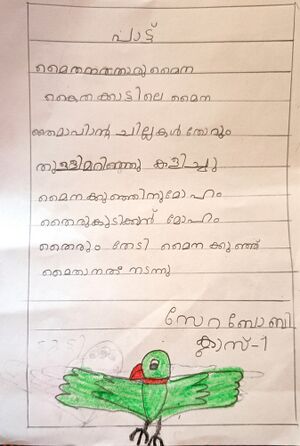 പാട്ട്
മൈതനത്താവുമൈന
കൈതക്കാട്ടിലെ മൈന
ചില്ലകൾ തോറും
തുള്ളിമറിഞ്ഞു കളിച്ചു
മൈനക്കുഞ്ഞിനുമോഹം
തൈരുകുടിക്കുന്ന് മോഹം
തൈരും തേടി മൈന ക്കുഞ്ഞ്
മൈതാനത്ത് നടന്നു
സേറ ബോബി
ക്ലാസ്-1